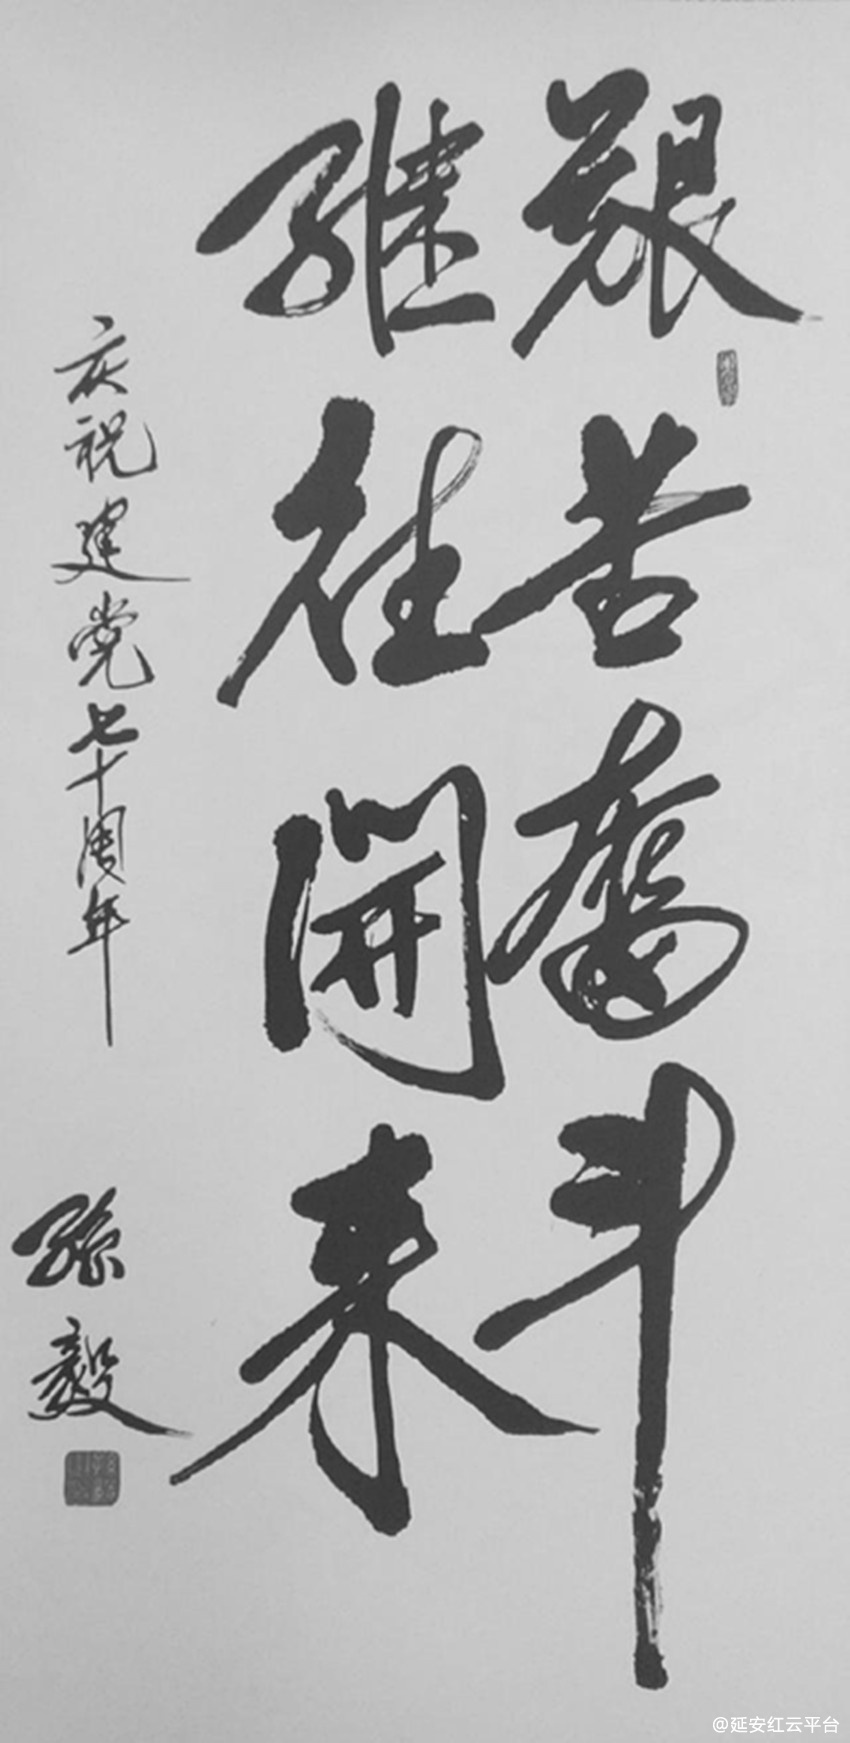 艱苦奮斗
继往開来
庆祝建党七十周年
孫毅
@延安红云平台